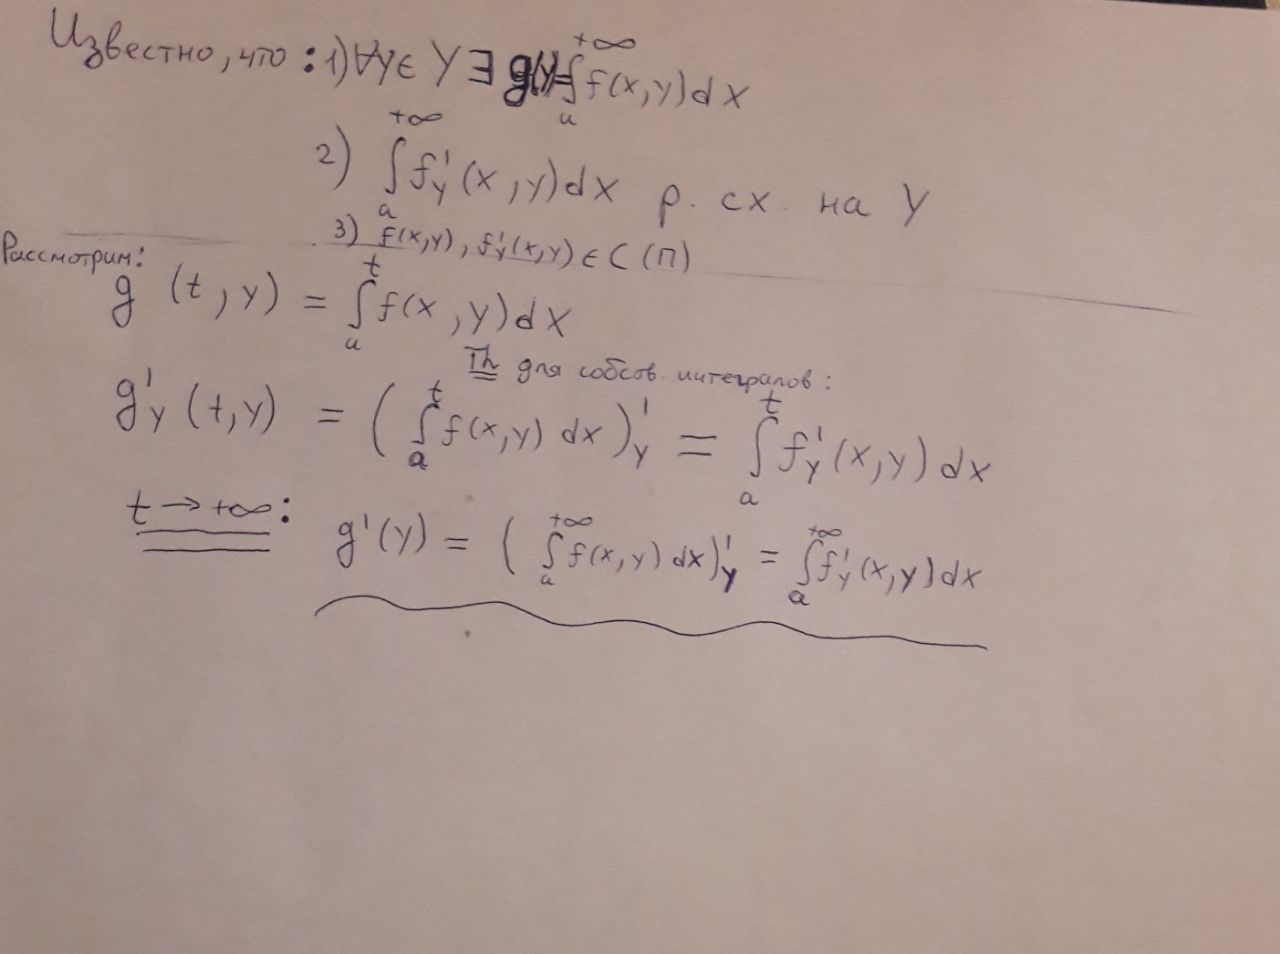 Известно, что: 1) ∀y ∈ Y ∃ g(y)= ∫ₐ^{+∞} f(x,y)dx
2) ∫ₐ^{+∞} f'_y(x,y)dx р. сх. на Y
3) f(x,y), f'_y(x,y) ∈ C(П)
Рассмотрим:
g(t,y) = ∫ₐ^t f(x,y)dx
Th для собств. интегралов:
g'_y(t,y) = (∫ₐ^t f(x,y) dx)'_y = ∫ₐ^t f'_y(x,y) dx
t → +∞: g'(y) = (∫ₐ^{+∞} f(x,y) dx)'_y = ∫ₐ^{+∞} f'_y(x,y) dx